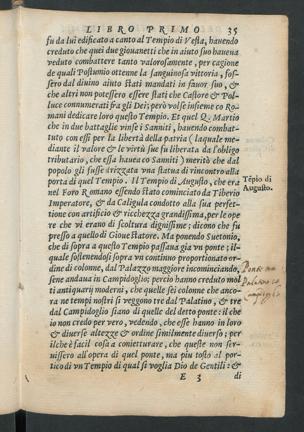 LIBRO PRIMO 35
fu da lui edificato a canto al Tempio di Vesta, hauendo
creduto che quei due giouanetti che in aiuto suo haueua
veduto combattere tanto valorosamente, per cagione
de quali Postumio ottenne la sanguinosa vittoria, fos-
sero dal diuino aiuto stati mandati in fauor suo, &
che altri non potessero essere stati che Castore & Pol-
luce connumerati fra gli Dei; però volse insieme co Ro-
mani dedicare loro questo Tempio. Et quel Q. Martio
che in due battaglie vinse i Sanniti, hauendo combat-
tuto con essi per la libertà della patria (laquale me-
diante il valore & le virtù sue fu liberata da l'obligo
tributario, che essa haueua co Sanniti) meritò che dal
popolo gli fusse drizzata vna statua di rincontro alla
porta di quel Tempio. Il Tempio di Augusto, che era
nel Foro Romano essendo stato cominciato da Tiberio
Imperatore, & da Caligula condotto alla sua perfet-
tione con artificio & ricchezza grandissima, per le ope
re che vi erano di scoltura dignissime; dicono che fu
presso a quello di Gioue Statore. Ma ponendo Suetonio,
che di sopra a questo Tempio passaua gia vn ponte; il-
quale sostenendosi sopra vn continuo proportionato or-
dine di colonne, dal Palazzo maggiore incominciando,
sene andaua in Campidoglio; percio hanno creduto mol
ti antiquarij moderni, che quelle sei colonne che anco-
ra ne tempi nostri si veggono tre dal Palatino, & tre
dal Campidoglio siano di quelle del detto ponte: il che
io non credo per vero, vedendo, che esse hanno in loro
& diuerse altezze & ordine similmente diuerso; per
ilche è facil cosa a conietturare, che queste non ser-
uissero all'opera di quel ponte, ma piu tosto al por-
tico di vn Tempio di qual si voglia Dio de Gentili: &
E 3 di
Tẽpio di
Augusto.
Ponte
Palatino
Campidoglio